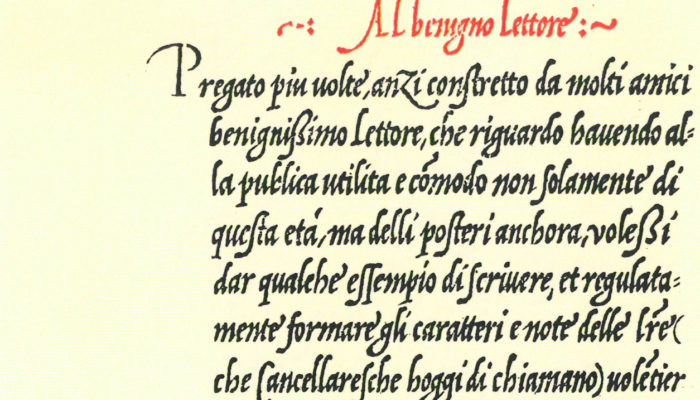 ~: Al benigno lettore :~
Pregato piu uolte, anzi conſtretto da molti amici
benigniſſimo Lettore, che riguardo hauendo al⸗
la publica utilita e cõmodo non ſolamente di
queſta etá, ma delli poſteri anchora, voleſſi
dar qualche eſſempio di ſcriuere, et regulata⸗
mente formare gli caratteri e note delle lr̃e (
che Cancellareſche hoggi di chiamano) uolẽtier